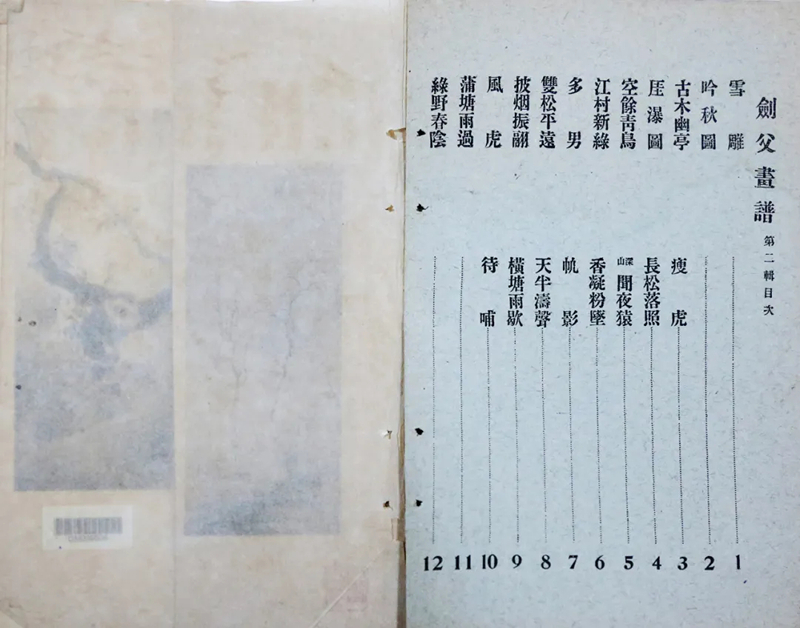 劍父畫譜 第二輯目次
雪雕 1
吟秋圖 2
古木幽亭 瘦虎 3
厓瀑圖 長松落照 4
空餘青鳥 深山聞夜猿 5
江村新綠 香凝粉墜 6
多男 帆影 7
雙松平遠 天半濤聲 8
披烟振翮 橫塘雨歇 9
風虎 待哺 10
蒲塘雨過 11
綠野春陰 12